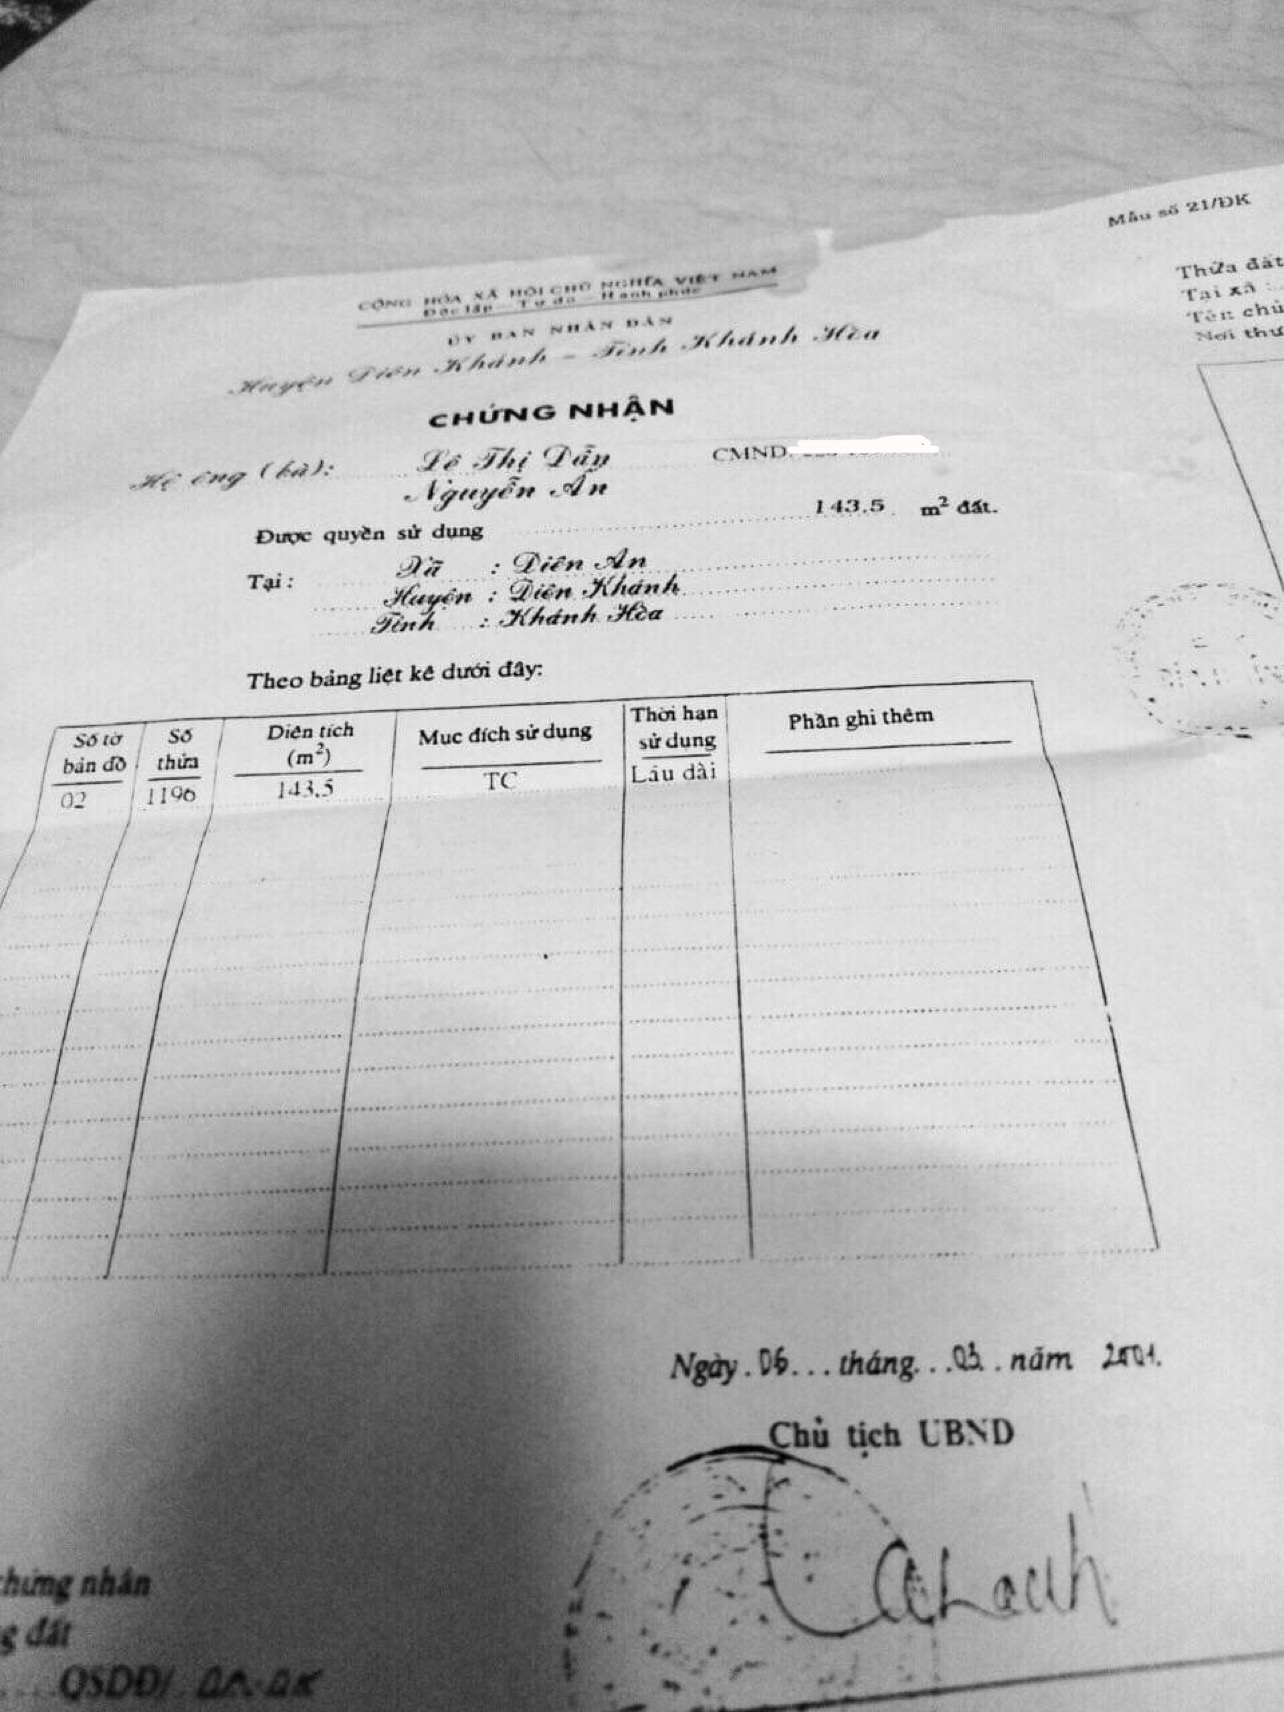 CỘNG HÒA XÃ HỘI CHỦ NGHĨA VIỆT NAM
Độc lập - Tự do - Hạnh phúc
ỦY BAN NHÂN DÂN
Huyện Diên Khánh - Tỉnh Khánh Hòa
CHỨNG NHẬN
Hộ ông (bà): Lê Thị Dẫy CMND:
Nguyễn Ấn
Được quyền sử dụng 143.5 m² đất.
Tại: Xã : Diên An
Huyện : Diên Khánh
Tỉnh : Khánh Hòa
Theo bảng liệt kê dưới đây:
Số tờ bản đồ Số thửa Diện tích (m²) Mục đích sử dụng Thời hạn sử dụng Phần ghi thêm
02 1196 143.5 TC Lâu dài
Ngày 06 tháng 03 năm 2001.
Chủ tịch UBND
chứng nhận
g đất
QSDĐ/
Mẫu số 21/ĐK
Thửa đất
Tại xã :
Tên chủ
Nơi thư